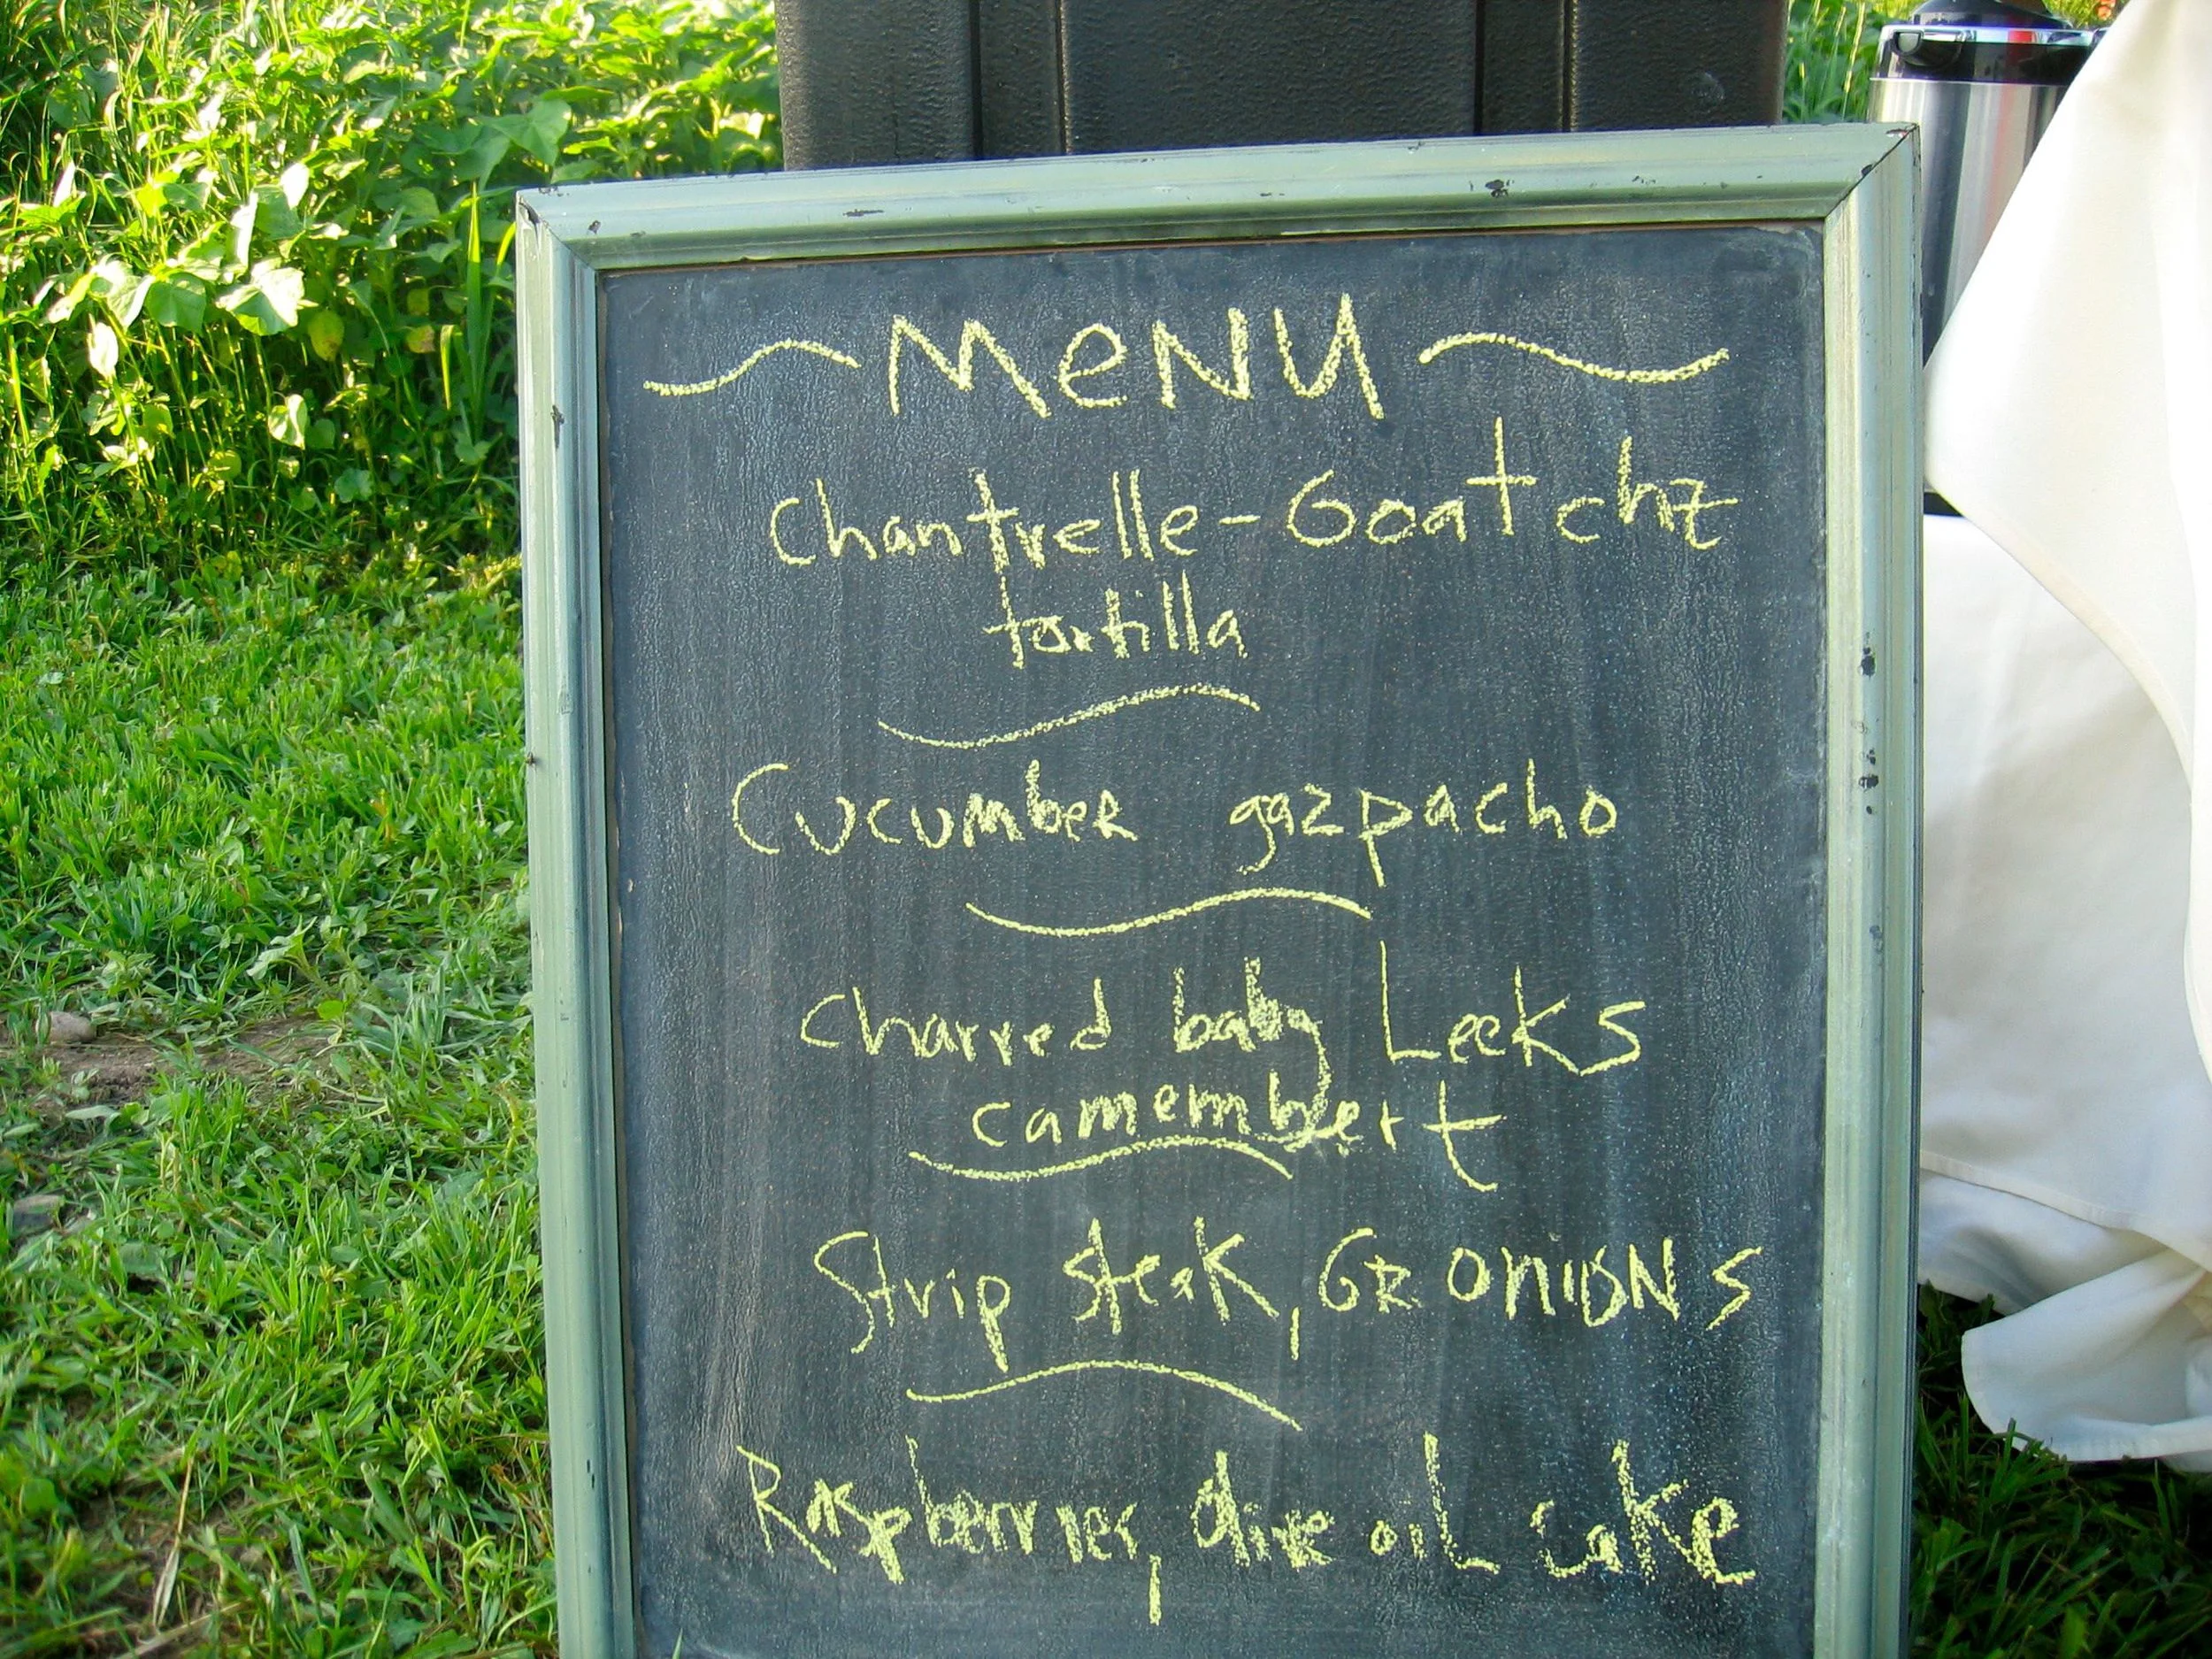 MeNU
Chantrelle-Goat chz
tortilla
Cucumber gazpacho
charred baby Leeks
camembert
Strip steak, GR onions
Raspberries, olive oil cake